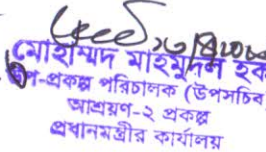 মোহাম্মদ মাহমুদুল হক
উপ-প্রকল্প পরিচালক (উপসচিব)
আশ্রয়ণ-২ প্রকল্প
প্রধানমন্ত্রীর কার্যালয়